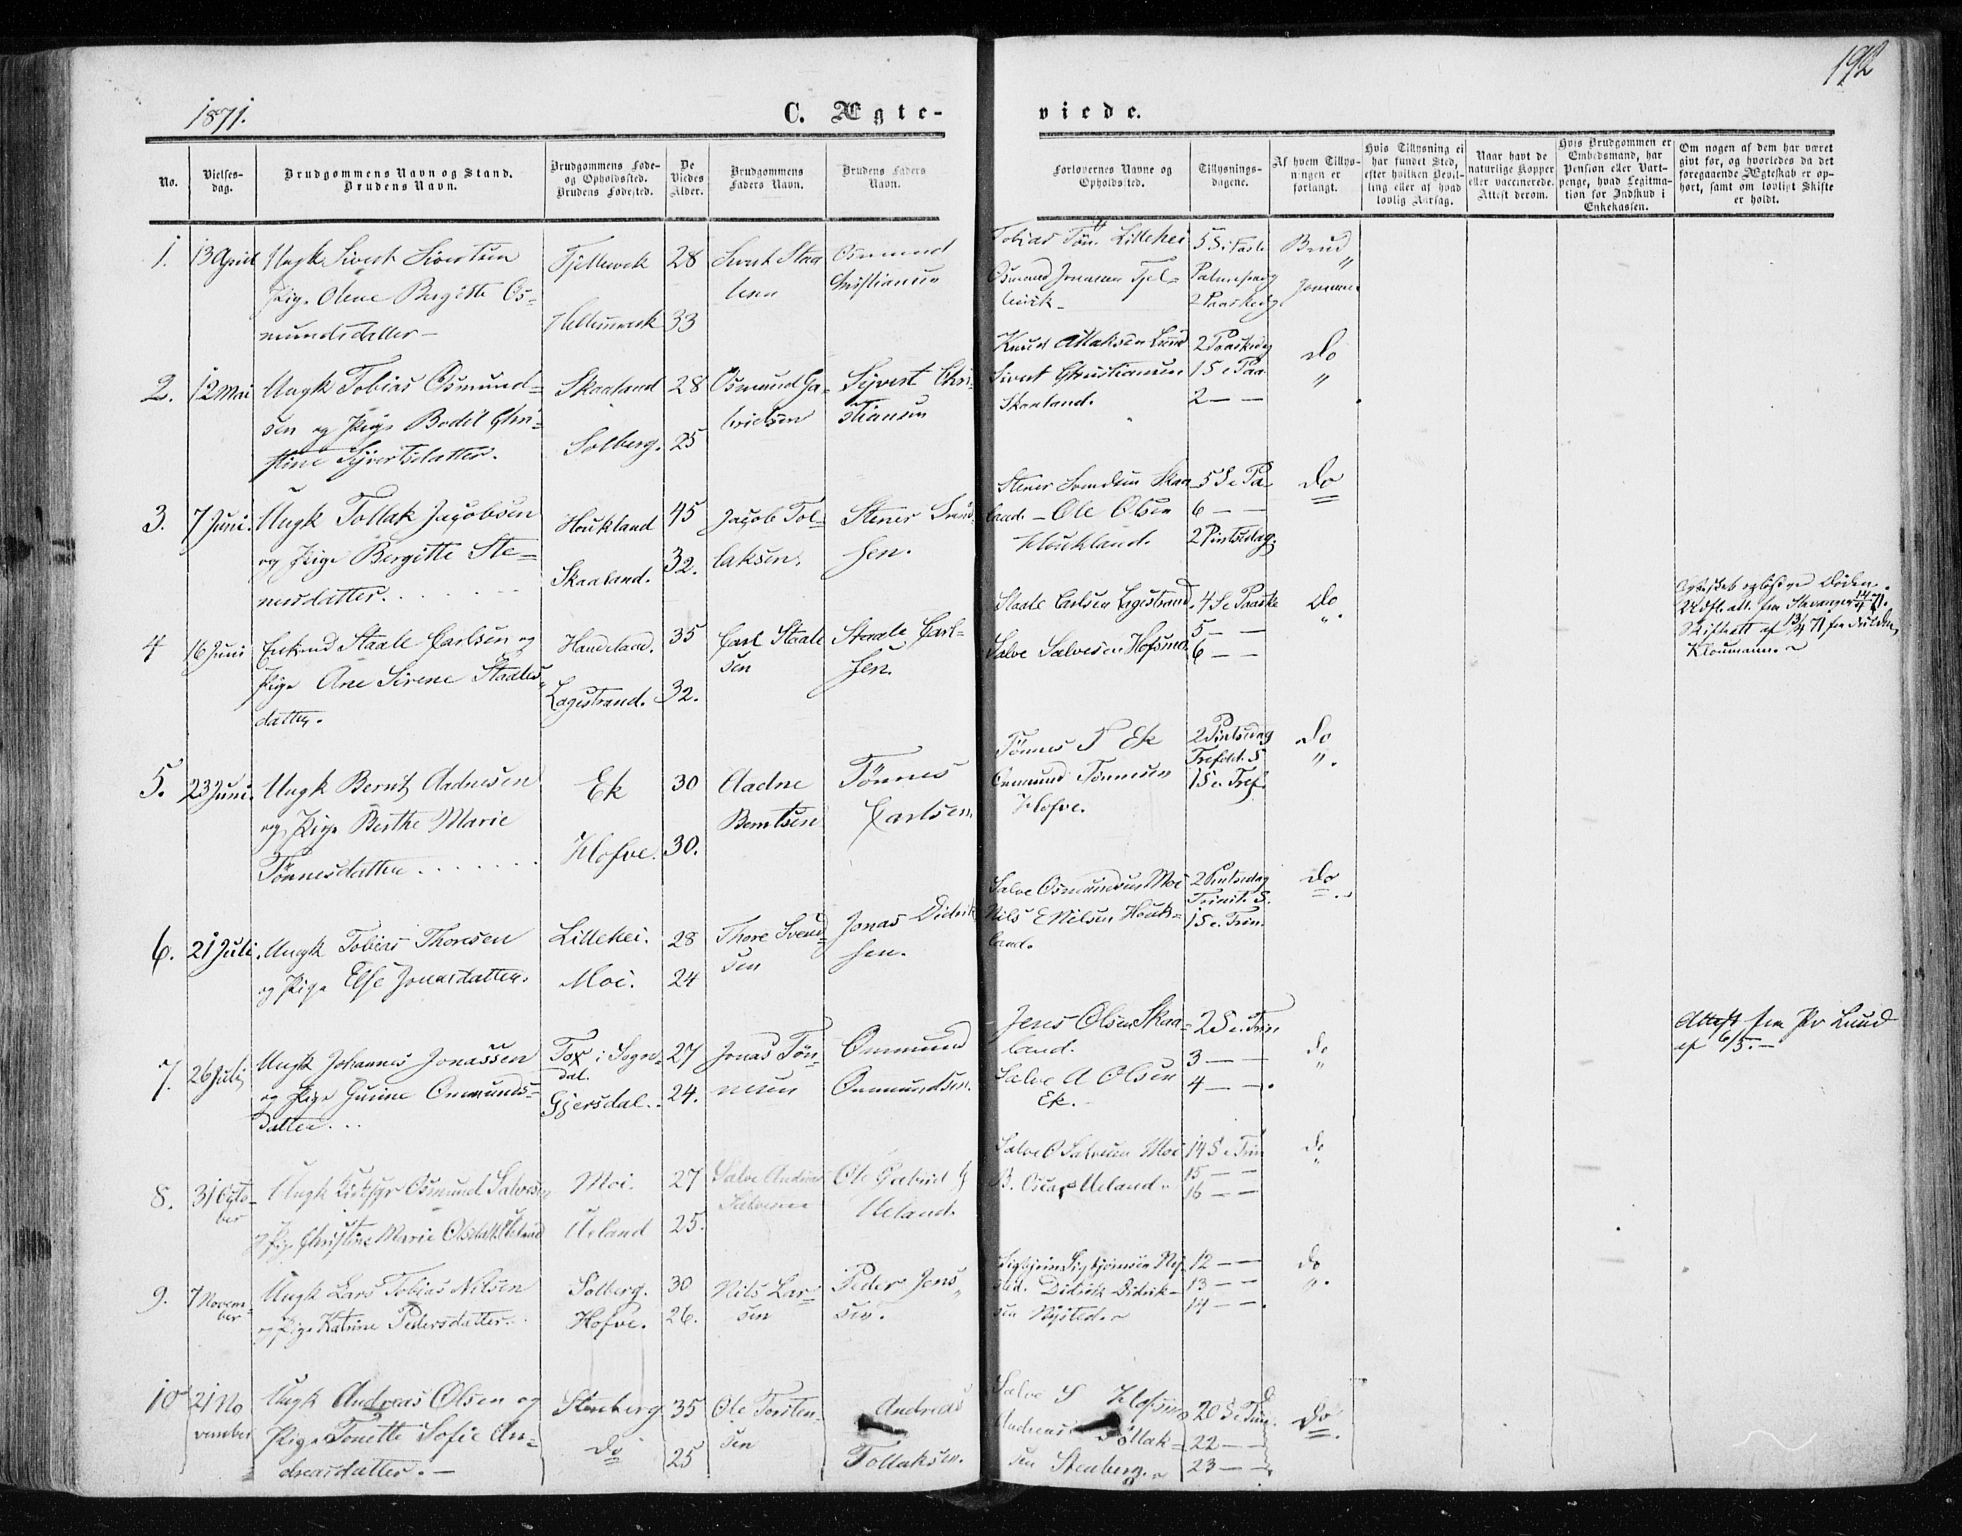 192
1871.
C. Ægte-
viede.
No.
Vielses-
dag.
Brudgommens Navn og Stand.
Brudens Navn.
Brudgommens Føde-
og Opholdssted.
Brudens Fødested.
De
Viedes
Alder.
Brudgommens
Faders Navn.
Brudens Faders
Navn.
Forlovernes Navne og
Opholdssted.
Tillysnings-
dagene.
Af hvem Tillys-
ningen er
forlangt.
Hvis Tillysning ei
har fundet Sted,
efter hvilken Bevil-
ling eller af hvad
lovlig Aarsag.
Naar havt de
naturlige Kopper
eller vaccinerede.
Attest derom.
Hvis Brudgommen er
Embedsmand, har
Pension eller Vart-
penge, hvad Legitima-
tion for Indskud i
Enkekassen.
Om nogen af dem har været
gift før, og hvorledes da det
foregaaende Ægteskab er op-
hørt, samt om lovligt Skifte
er holdt.
1. 13 April
Ungk Sivert Sivertsen
Pige Olene Bergitte Os-
mundsdatter —
Fjellevek
28
33
Sivert Staa
lesen
Osmund
Christiansen
Tobias Tøn. Lillehei
Osmund Jonassen Fjel-
levik —
5 S i Faste
Palmesøndg
2 Paaskedg.
Brud
"
2. 12 Mai
Ungk Tobias Osmund-
sen og Pige Bodil Chri-
stine Syvertsdatter.
Skaaland
Solberg.
28
25
Osmund Ga-
brielsen
Syvert Chri-
stiansen
Knud Aslaksen Lund
Sivert Christiansen
Skaaland.
2 Paaskedg
1 S e Paa
2 — —
Do
"
3. 7 Juni.
Ungk Tollak Jacobsen
og Pige Bergitte Ste-
nersdatter. . . . . . .
Houkland
Skaaland.
45
32.
Jacob Tol-
laksen.
Stener Svend-
sen.
Stener Svendsen Skaa
land. — Ole Olsen
Houkland.
5 S e Pa
6 — —
2 Pintsedag.
Do
4 16 Juni
Enkmd Staale Carlsen og
Pige Ane Sirene Staales
datter.
Handeland.
Lagestrand.
35
32.
Carl Staale
sen
Staale Carl-
sen.
Staale Carlsen Lagestrand.
Salve Salvesen Hofsmd.
4 S e Paaske
5 — —
6 — —
Do
"
5. 23 Juni.
Ungk Bernt Aadnesen
og Pige Berthe Marie
Tønnesdatter . . . . . .
Ek
Hofve.
30
30.
Aadne
Berntsen
Tønnes
Carlsen
Tønnes T Ek
Onmund Tønnesen
Hofve.
2 Pintsedag
Trefold. S
1 S e Tref.
Do
".
6. 21 Juli.
Ungk Tobias Thoresen
og Pige Else Jonasdatter.
Lillehei.
Moi.
28
24
Thore Svend-
sen
Jonas Didrik
sen.
Salve Osmundsen Moi
Nils E Nilsen Houk-
land.
2 Pintsedag
Trinit. S.
1 S e. Trin.
Do
7. 26 Juli
Ungk Johannes Jonassen
og Pige Gurine Onmunds-
datter. . .
Fox i Sogn-
dal.
Gjersdal.
27
24.
Jonas Tøn-
nesen
Onmund
Onmundsen.
Jens Olsen Skaa-
land.
Salve A Olsen
Ek.
2 S e. Trin
3 — —
4 — —.
Do
"
Attest fra Pr Lund
af 6/5. —
8. 31 Octo-
ber
Moi.
Ueland
27
25.
Salve Andreas
Salvesen
Ole Gabriel G
Ueland.
Salve O Salvesen Moi
B. Oscar Ueland.
14 S e Trin
15 — —
16 — —
Do
"
9. 7 Novem-
ber
Ungk Lars Tobias Nilsen
og Pige Katrine Pedersdatter.
Solberg.
Hofve.
30
26.
Nils Lar-
sen
Peder Jens-
sen.
Didrik Didrik-
sen Nysted.
12 — —
13 — —
14 — —.
Do
".
10 21 No
vember
Ungk Andreas Olsen og
Pige Tonette Sofie An-
dreasdatter. —
Stenberg
Do
35
25
Ole Torsten-
sen
Andreas
Tollaksen.
Salve S Hofsmd
Andreas Tollak-
sen Stenberg.
20 S e Trin.
22 — —
23 — —.
Do